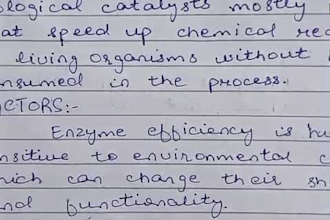 ological catalysts mostly
at speed up chemical rea
living organisms without
nsumed in the process.
CTORS:-
Enzyme efficiency is hi
nsitive to environmental c
hich can change their sh
nd functionality.